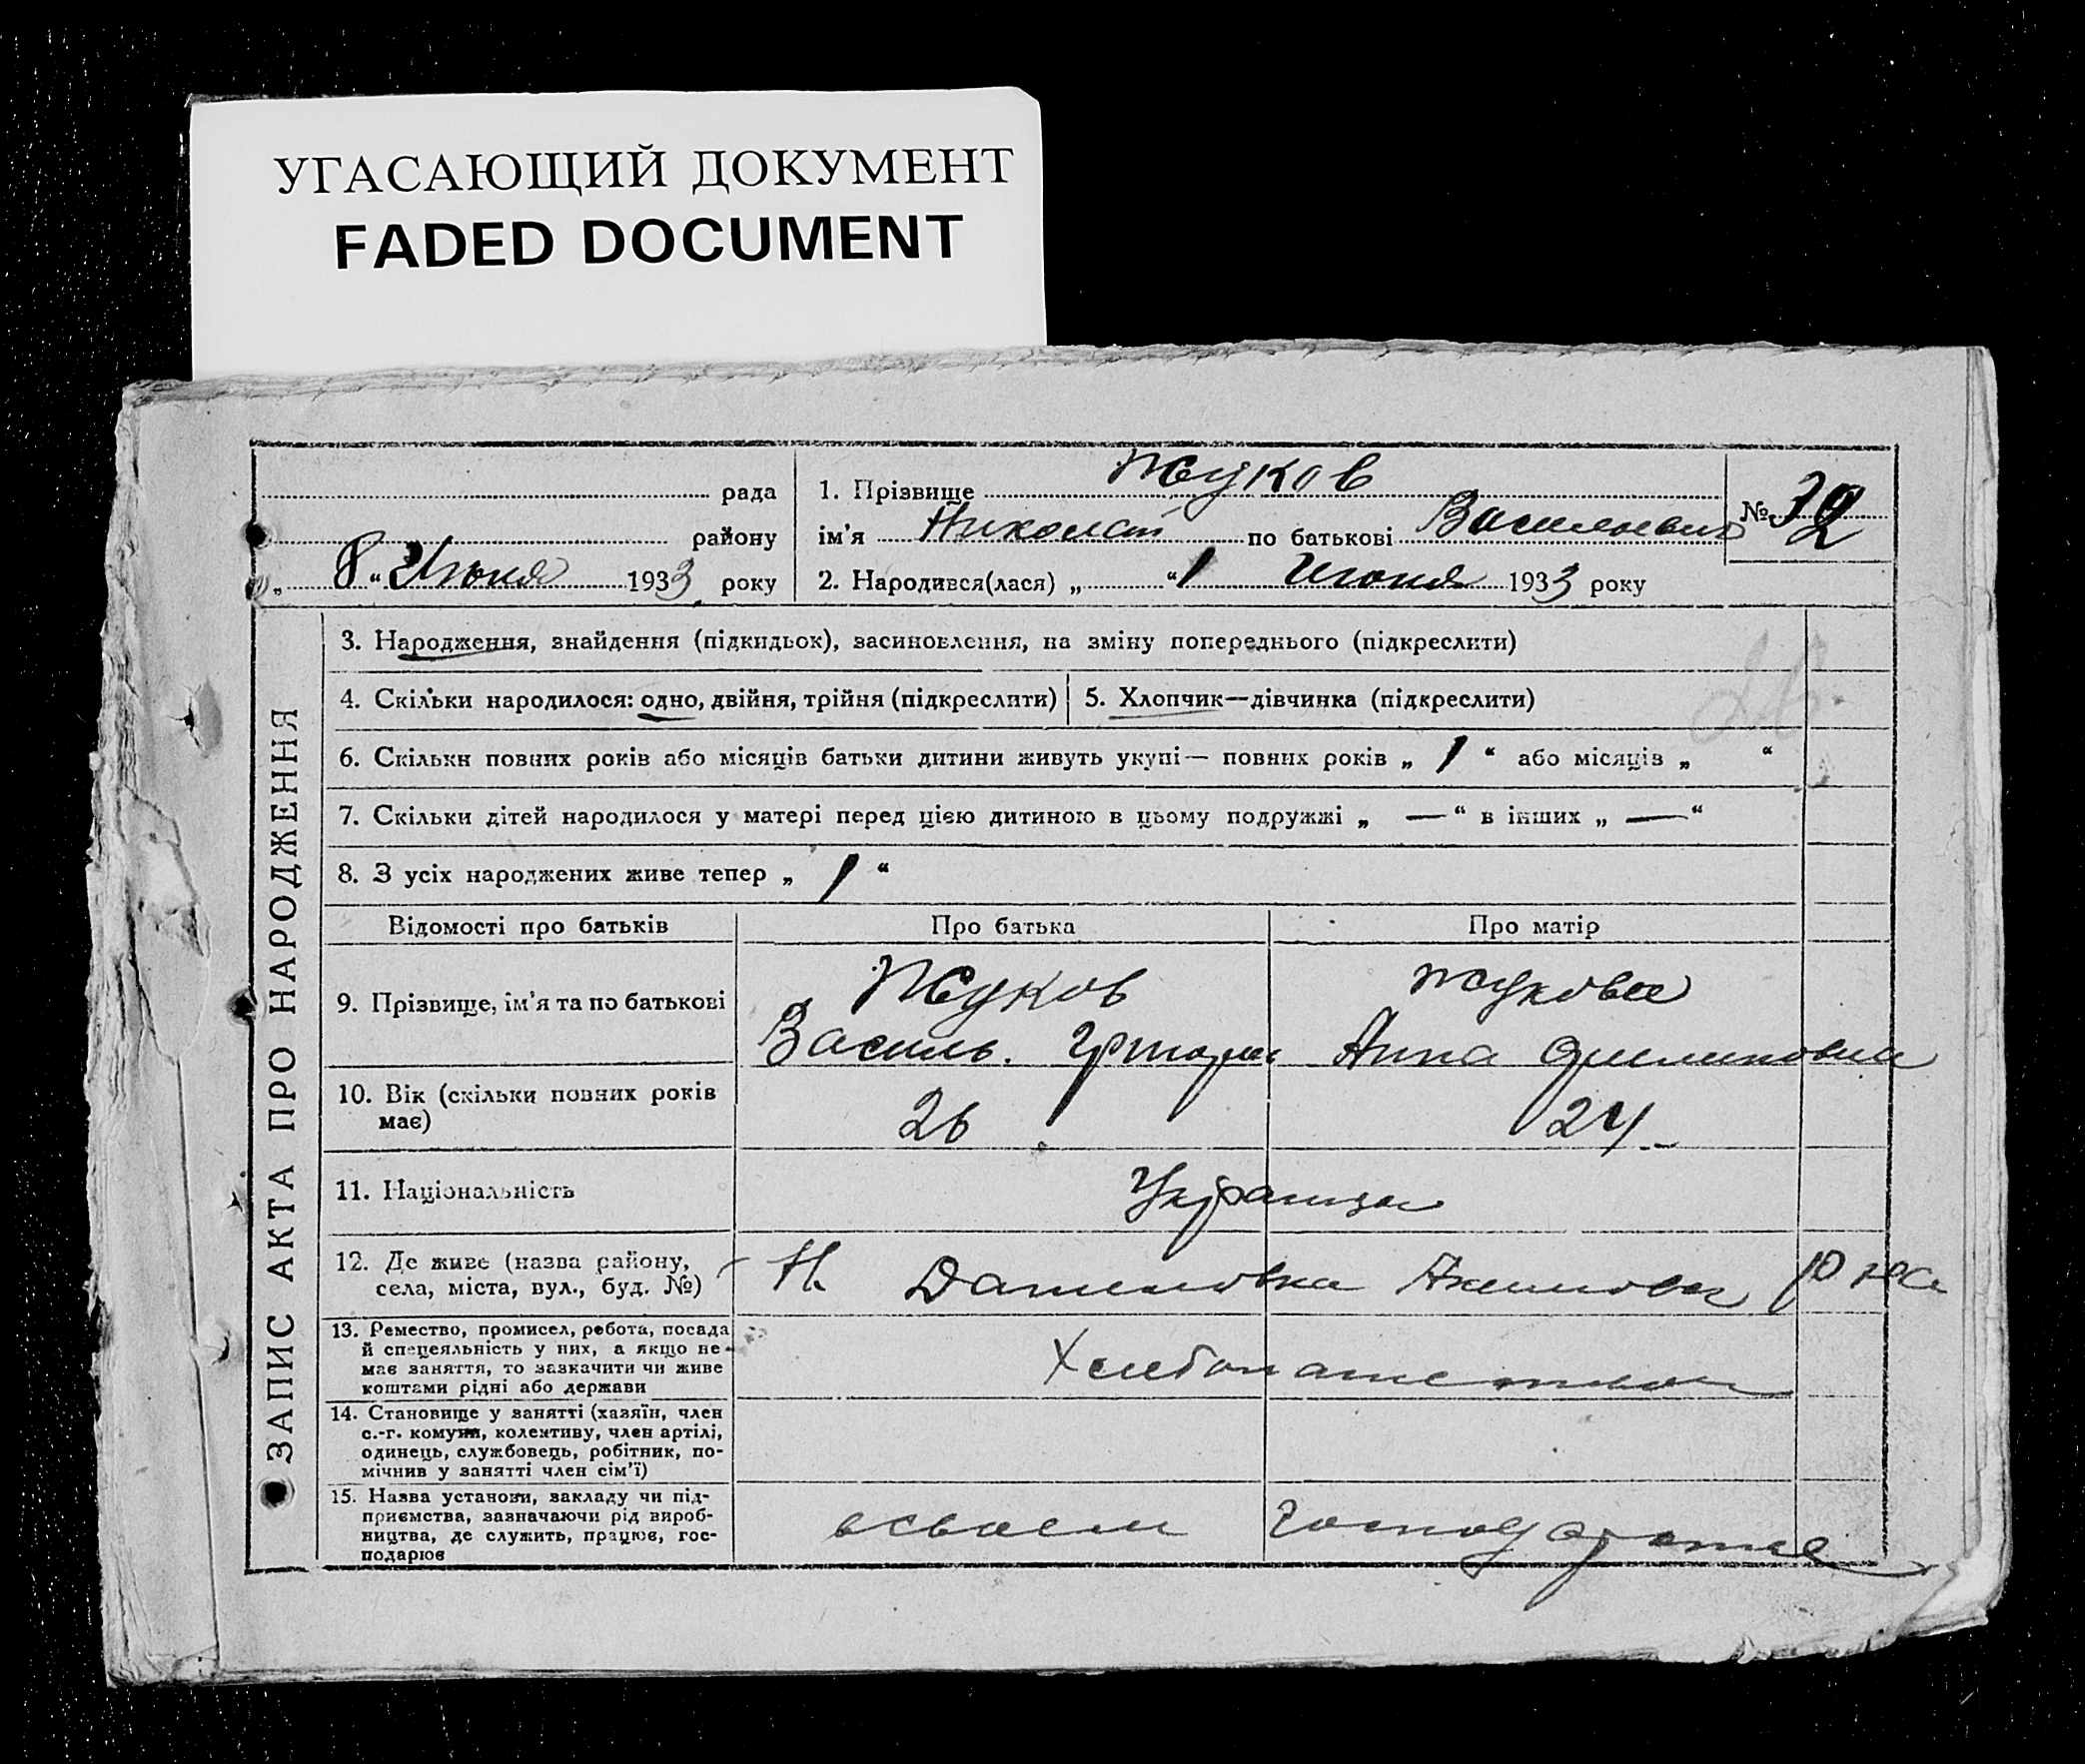 УГАСАЮЩИЙ ДОКУМЕНТ
FADED DOCUMENT
рада
району
8 “ Июня 1933 року
1. Прізвище Жуков
ім'я Николай по батькові Васильевич
2. Народився(лася) „ “ 1 Июня 1933 року
№
ЗАПИС АКТА ПРО НАРОДЖЕННЯ
3. Народження, знайдення (підкидьок), засиновлення, на зміну попереднього (підкреслити)
4. Скільки народилося: одно, двійня, трійня (підкреслити)
5. Хлопчик—дівчинка (підкреслити)
6. Скільки повних років або місяців батьки дитини живуть укупі— повних років „ 1 “ або місяців „ “
7. Скільки дітей народилося у матері перед цією дитиною в цьому подружжі „ — “ в інших „ — “
8. З усіх народжених живе тепер „ 1 “
Відомості про батьків Про батька Про матір
9. Прізвище, ім'я та по батькові
Жуков Жукова
Василь. Анна
10. Вік (скільки повних років
має)
26 24
11. Національність
12. Де живе (назва району,
села, міста, вул., буд. №)
Н. Даниловка
13. Ремество, промисел, робота, посада
й спецеяльність у них, а якщо не
має заняття, то зазкачити чи живе
коштами рідні або держави
14. Становище у занятті (хазяїн, член
с.-г. комуни, колективу, член артілі,
одинець, службовець, робітник, по-
мічнив у занятті член сім'ї)
15. Назва установи, закладу чи під-
приємства, зазначаючи рід вироб-
ництва, де служить, працює, гос-
подарює